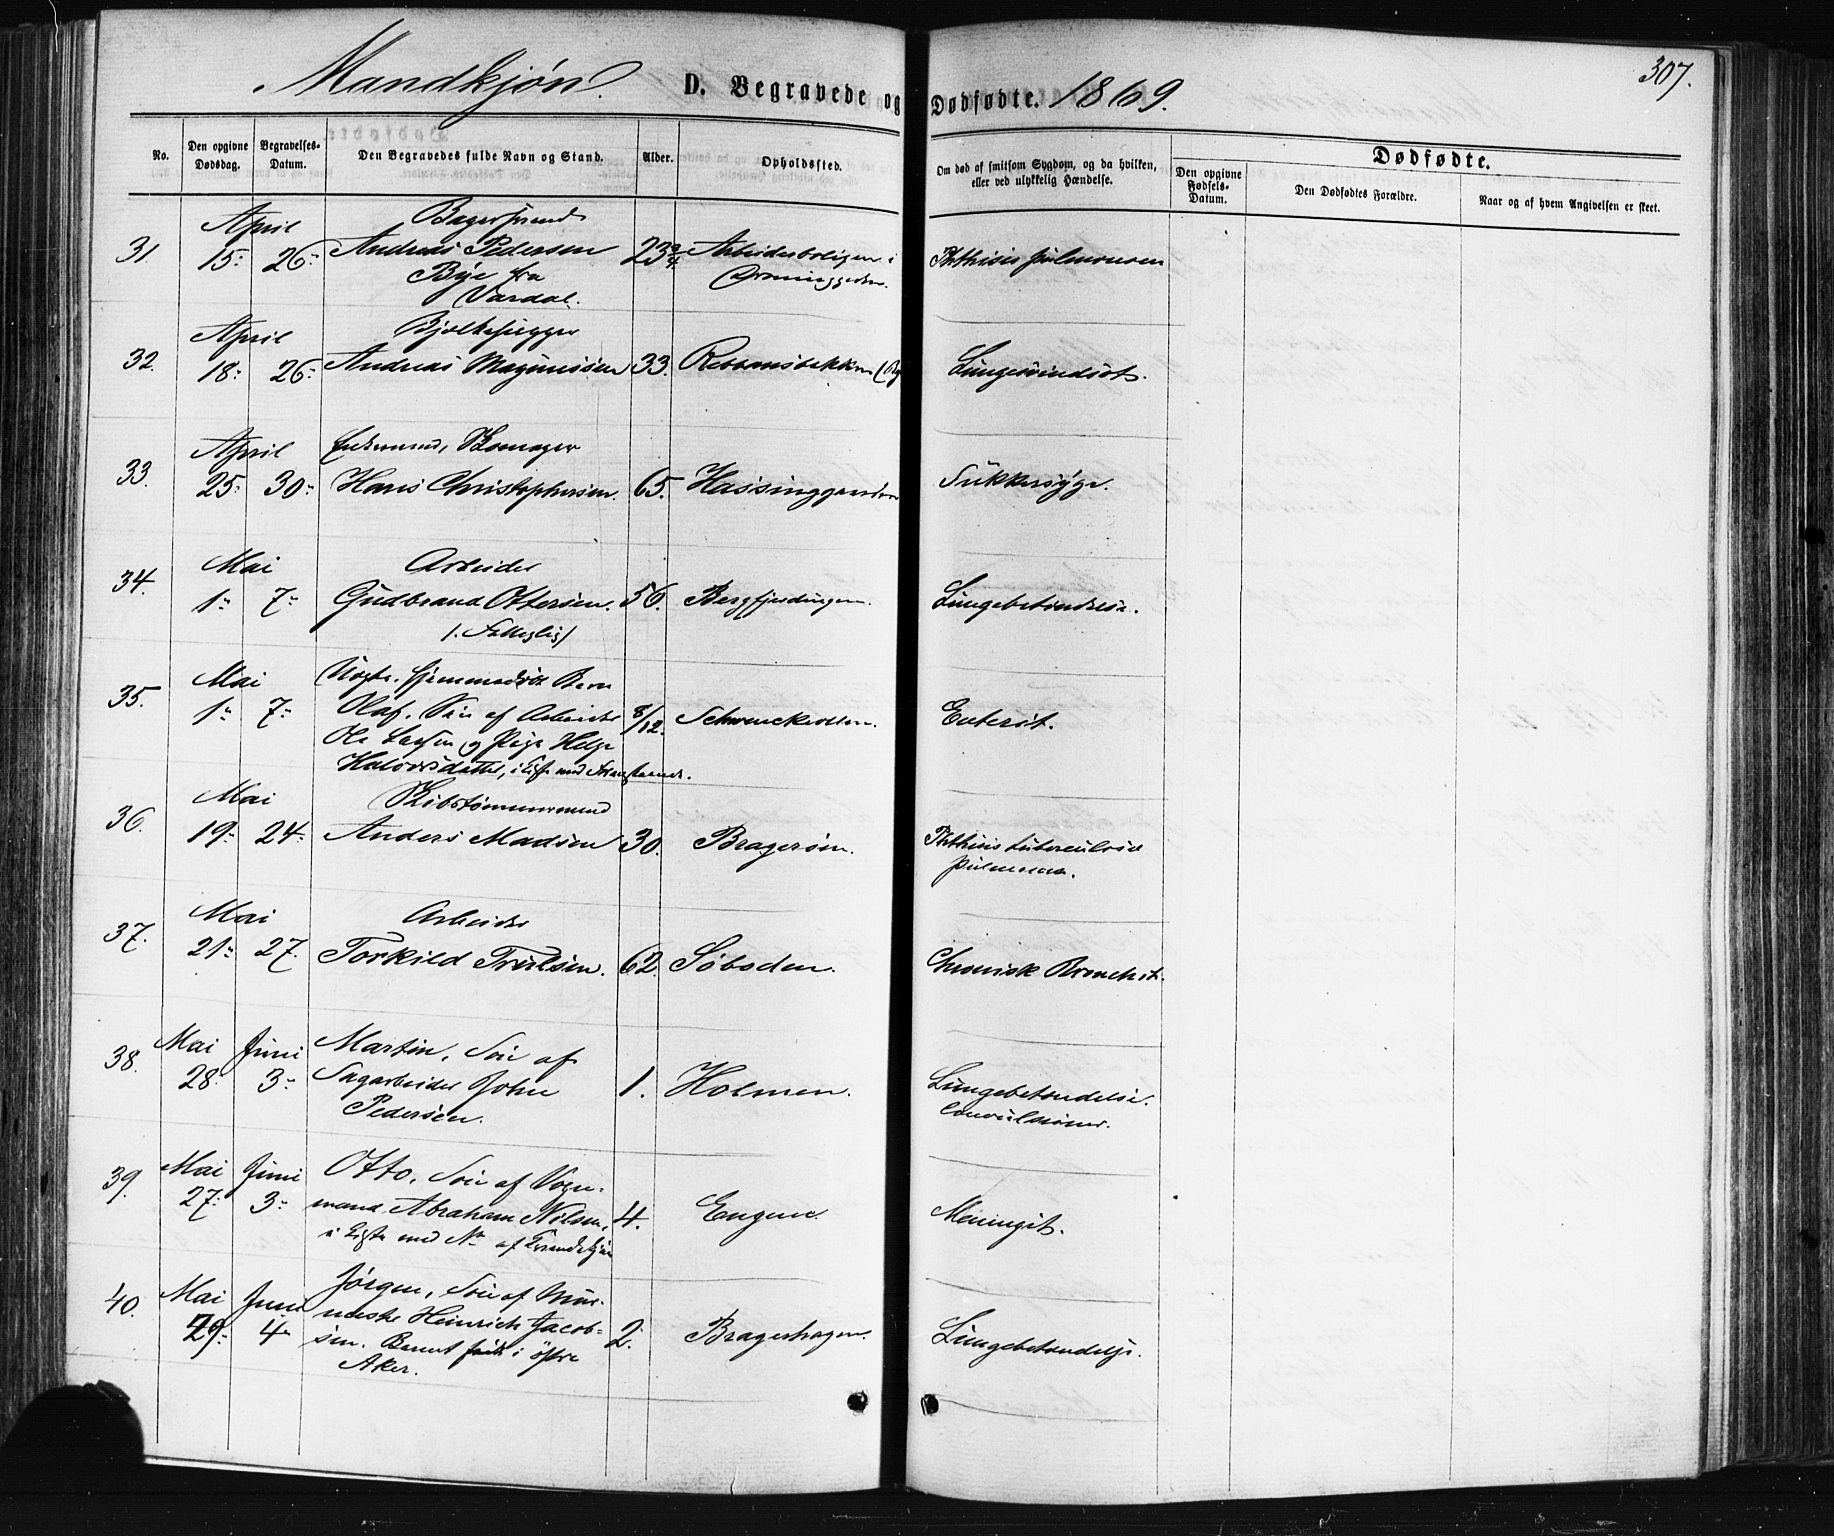 Mandkjøn. D. Begravede og Dødfødte. 1869. 307.
No. Den opgivne Dødsdag. Begravelses-Datum. Den Begravedes fulde Navn og Stand. Alder. Opholdssted. Om død af smitsom Sygdom, og da hvilken, eller ved ulykkelig Hændelse. Dødfødte.
Den opgivne Fødsels-Datum. Den Dødfødtes Forældre. Naar og af hvem Angivelsen er skeet.
April Bagersvend
31 15 26 Andreas Pedersen 23 3/4 Arbeiderboligen i Phthisis pulmonum
Bye fra
Vardal.
April Bjelkehugger
32. 18 26 Andreas Magnussen 33. Lungesvindsot.
April Enkemand, Skomager
33. 25 30 Hans Christophersen. 65. Hassinggaarden Sukkersyge.
Mai Arbeider
34. 1 7 Gudbrand Ottersen. 56. Bergfjerdingen. Lungebetændelse.
/: Fattiglig/
Mai hjemmedøbt Barn
35. 1 7 Olaf, Søn af Arbeider 8/12. Schwenckvollen. Enterit.
Ole Larsen og Pige Helge
Halvorsdatter,
Mai Skibstømmermand
36. 19 24 Anders Madsen 30. Bragerøen. Phthisis tuberculosa
pulmonum.
Mai Arbeider
37. 21 27. Torkild Trulsen. 62. Søboden. Chronisk Bronchit.
Mai Juni Martin, Søn af
38. 28 3 Sagarbeider John 1. Holmen. Lungebetændelse.
Pedersen. Convulsioner.
Mai Juni Otto, Søn af Vogn-
39. 27 3 mand Abraham Nilsen, 4. Engene. Meningit.
i Kiste med No af Kvindekjøn
Mai Juni Jørgen, Søn af Mur-
40. 29 4 mester Heinrich Jacob- 2. Bragerhagen. Lungebetændelse.
sen. Barnet født i østre
Aker.